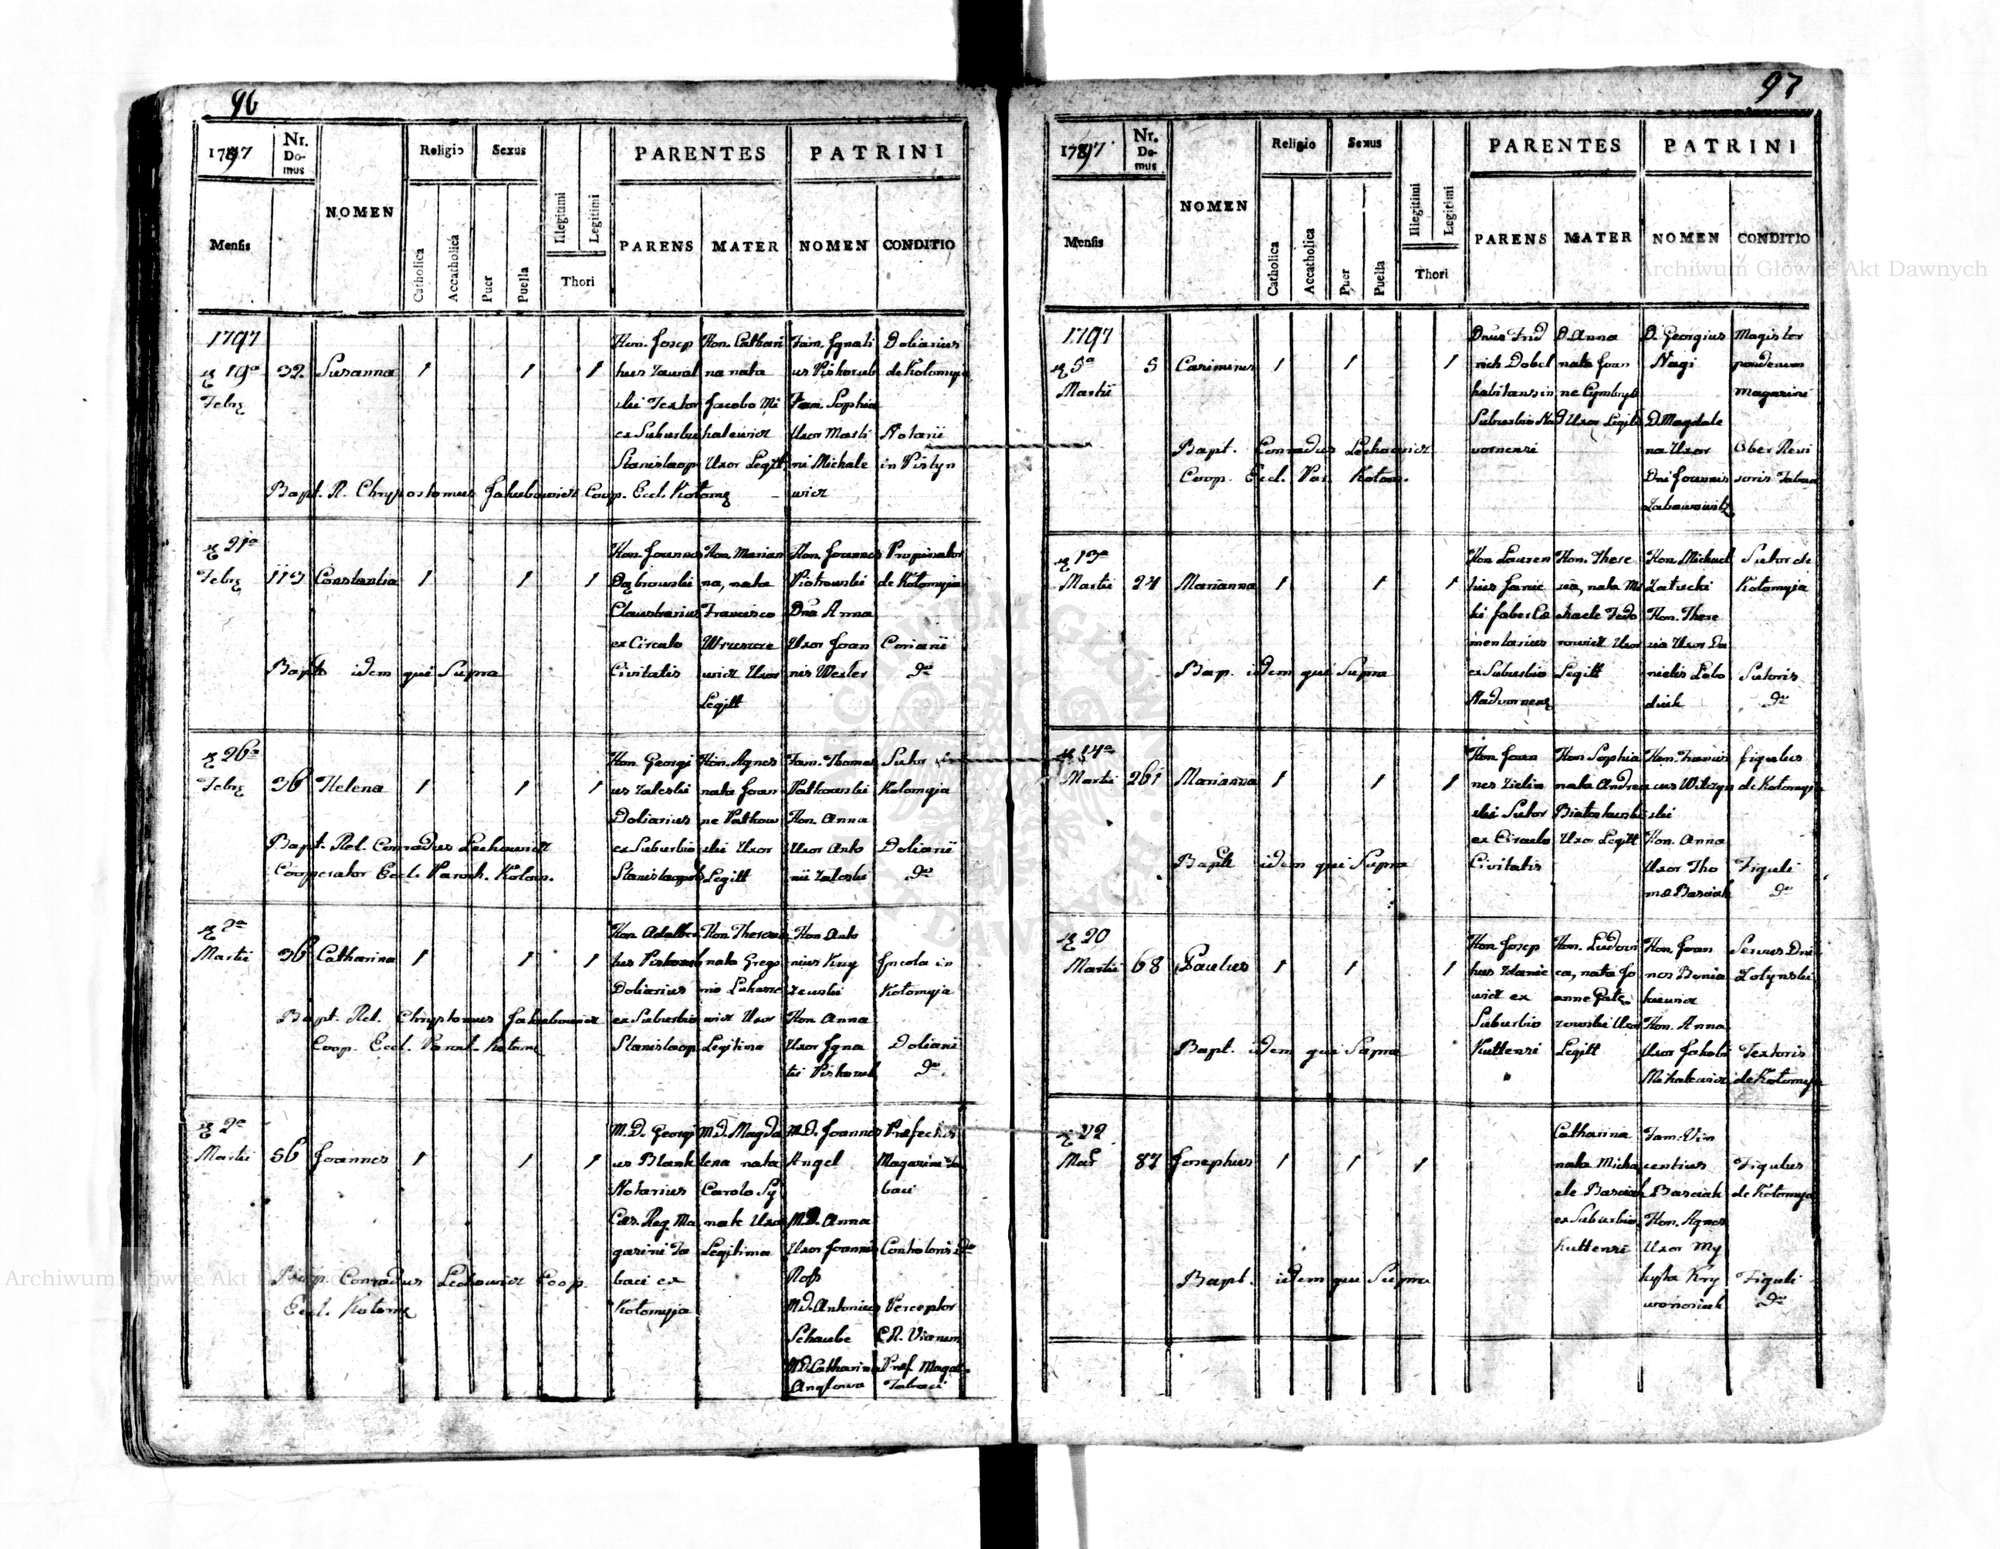 96
1797
Nr. Domus
NOMEN
Religio
Sexus
PARENTES
PATRINI
Mensis
Catholica
Accatholica
Puer
Puella
Illegitimi
Legitimi
Thori
PARENS
MATER
NOMEN
CONDITIO
1797
19a Febr
32
Susanna
1
1
1
Hon. Josep
hus
Textor
ex Suburbio
Stanislaop
Hon. Cathari
na nata
Jacobo Mi
halewicz
Uxor Legitt
Fam. Ignati
us Piskozub
Fam. Sophia
Uxor Marti
ni Michale
wicz
Doliarius
de Kołomyja
Notarii
in Pistyn
Bapt. R. Chrysostomus Jakubowicz Coop. Eccl. Kołom
21a
Febr
113
Constantia
1
1
1
Hon. Joannes
Dąbrowski
Claustrarius
ex Circulo
Civitatis
Hon. Marian
na, nata
Francisco
wicz Uxor
Legitt
Hon. Joannes
Piotrowski
Dna Anna
Uxor Joan
nis Wexler
Propinator
de Kołomyja
Coriarii
do
Bapt. idem qui Supra
26a
Febr
36
Helena
1
1
1
Hon. Georgi
us Zaleski
Doliarius
ex Suburbio
Stanislaopol
Hon. Agnes
nata Joan
ne Patkow
ski Uxor
Legitt
Fam. Thomas
Patkowski
Hon. Anna
Uxor Anto
nii Zaleski
Sutor in
Kolomyia
Doliarii
do
Bapt. Rel. Conradus Lechowicz
Cooperator Eccl. Paroch. Kolom.
2a
Martii
36
Catharina
1
1
1
Hon. Adalber
tus Piskozub
Doliarius
ex Suburbio
Stanislaop
Hon. Theresia
nata Grego
rio Lukasze
wicz Uxor
Legitima
Hon. Anto
nius Kry
zewski
Hon. Anna
Uxor Igna
tii Piskozub
Incola in
Kołomyja
Doliarii
do
Bapt. Rel. Jakubowicz
Coop. Eccl. Paroch. Kołom
2a
Martii
56
Joannes
1
1
1
M.D. Georgi
us Blank
Notarius
Caes. Reg. Ma
gazini Ta
baci ex
Kołomyja
M.D. Magda
lena nata
Carolo Sy
nak Uxor
Legitima
M.D. Joannes
Angel
M.D. Anna
Uxor Joannis
M.D. Antonius
Schaube
M.D. Catharina
Anglowa
Prefectus
Magazini Ta
baci
Perceptor
C.R. Viarum
Pref. Magaz.
Tabaci
Bap. Conradus Lechowicz Coop.
Eccl. Kołom
97
1797
Nr. Domus
NOMEN
Religio
Sexus
PARENTES
PATRINI
Mensis
Catholica
Accatholica
Puer
Puella
Illegitimi
Legitimi
Thori
PARENS
MATER
NOMEN
CONDITIO
1797
5a
Martii
5
Casimirus
1
1
1
Dnus Frid
rich Dobel
habitans in
Suburbio Nad
vornensi
D. Anna
nata Joan
ne
Uxor Legitt
D. Georgius
Nagi
D. Magdale
na Uxor
Dni Joannis
Magister
ponderum
Magazini
Ober Revi
soris
Bapt. Conradus Lechowicz
Coop. Eccl. Par. Kołom.
13a
Martii
24
Marianna
1
1
1
Hon. Lauren
tius
ki faber Ce
mentarius
ex Suburbio
Nadvornens
Hon. There
sia, nata Mi
chaele Fedo
rowicz Uxor
Legitt
Hon. Michael
Załucki
Hon. There
sia Uxor Da
nielis Lobo
dziuk
Sutor de
Kołomyja
Sutoris
do
Bap. idem qui Supra
14a
Martii
261
Marianna
1
1
1
Hon. Joan
nes Zielin
ski Sutor
ex Circulo
Civitatis
Hon. Sophia
nata Andrea
Uxor Legitt
Hon. Francis
cus
ski
Hon. Anna
Uxor Tho
mae Basciak
figulus
de Kołomyja
Figuli
do
Bapt. idem qui Supra
20
Martii
68
Paulus
1
1
1
Hon. Josep
hus
wicz ex
Suburbio
Kuttensi
Hon. Ludovi
ca, nata Jo
anne
Uxor
Legitt
Hon. Joan
nes Benia
kiewicz
Hon. Anna
Uxor Jakobi
Mihalewicz
Servus Dni
Zołynski
Textoris
de Kołomyja
Bapt. idem qui Supra
22
Mar
87
Josephus
1
1
1
Catharina
nata Micha
ele Basciak
ex Suburbio
Kuttensi
Fam. Vin
centius
Basciak
Hon. Agnes
Uxor My
kyta Kry
woronciuk
Figulus
de Kołomyja
Figuli
do
Bapt. idem qui Supra
Archiwum Główne Akt Dawnych